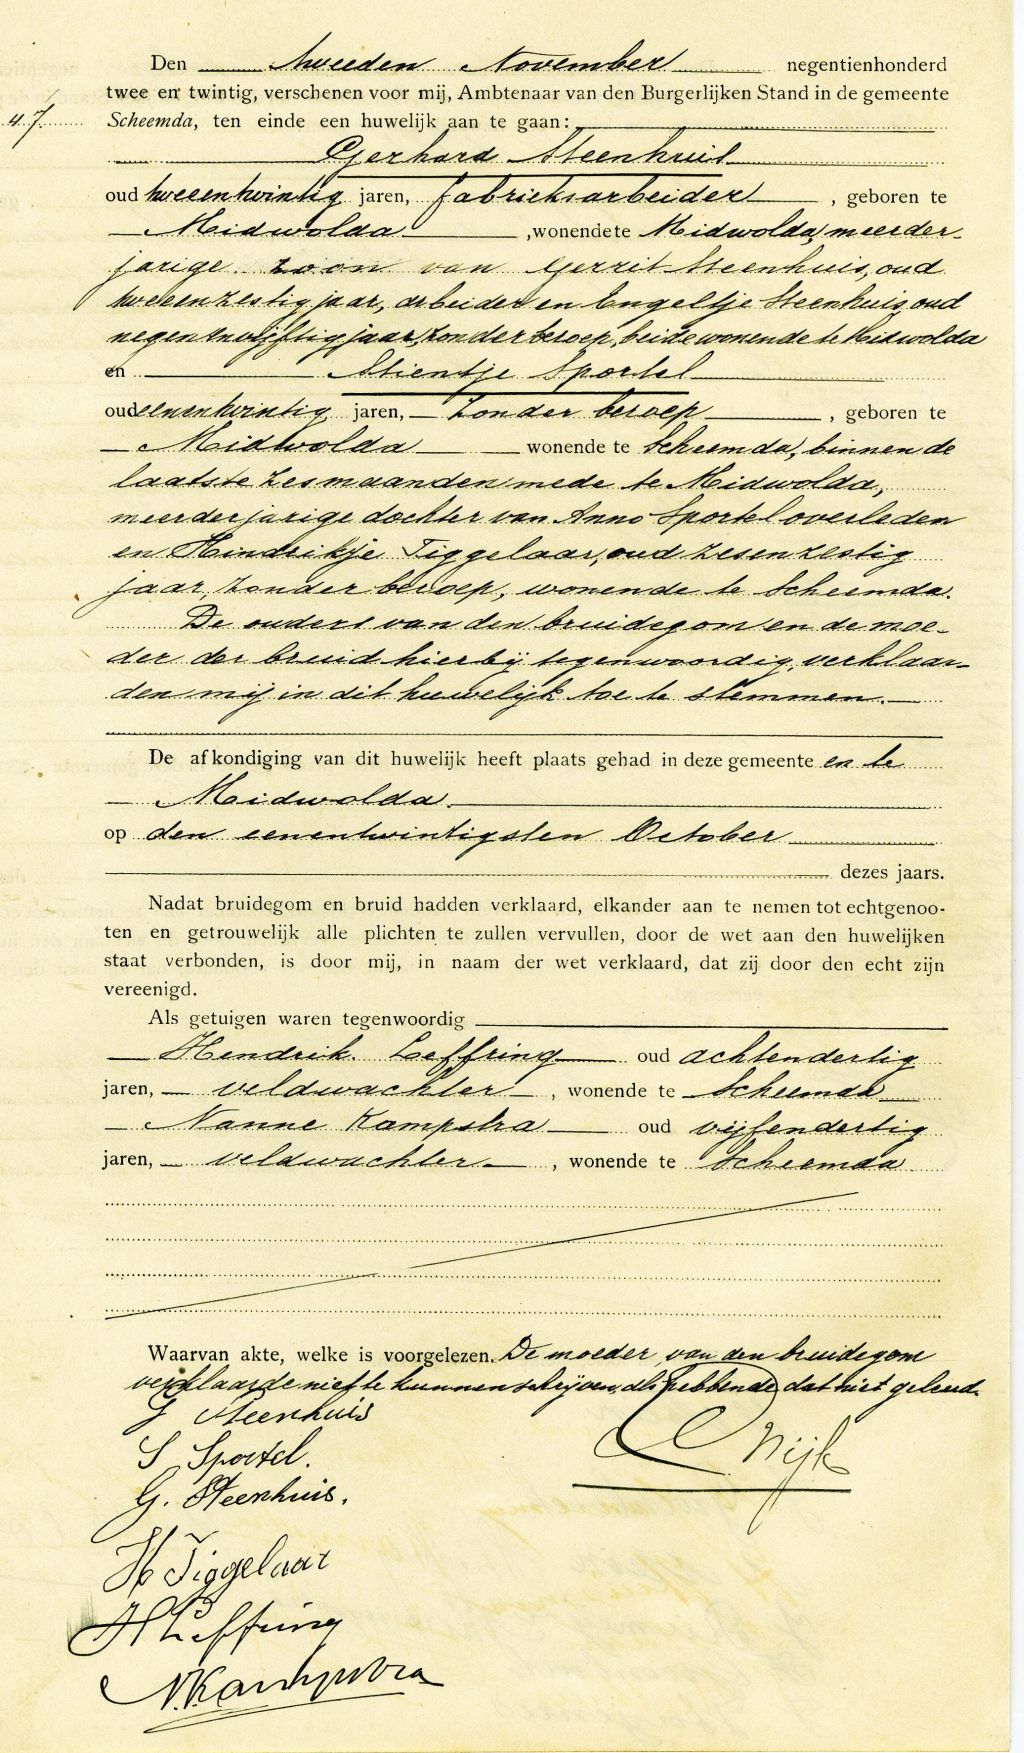 Den tweeden November negentienhonderd
twee en twintig, verschenen voor mij, Ambtenaar van den Burgerlijken Stand in de gemeente
47. Scheemda, ten einde een huwelijk aan te gaan:
Gerhard Steenhuis
oud tweeentwintig jaren, fabrieksarbeider, geboren te
Midwolda, wonende te Midwolda, meerder-
jarige zoon van Gerrit Steenhuis, oud
tweeenzestig jaar, arbeider en Engeltje Steenhuis, oud
negenenvijftig jaar, zonder beroep, beide wonende te Midwolda
en Stientje Sportel
oud eenentwintig jaren, zonder beroep, geboren te
Midwolda wonende te Scheemda, binnen de
laatste zes maanden mede te Midwolda,
meerderjarige dochter van Anno Sportel overleden
en Hindrikje Tiggelaar, oud zesenzestig
jaar, zonder beroep, wonende te Scheemda.
De ouders van den bruidegom en de moe-
der der bruid hierbij tegenwoordig, verklaar-
den mij in dit huwelijk toe te stemmen.
De afkondiging van dit huwelijk heeft plaats gehad in deze gemeente en te
Midwolda.
op den eenentwintigsten October
dezes jaars.
Nadat bruidegom en bruid hadden verklaard, elkander aan te nemen tot echtgenoo-
ten en getrouwelijk alle plichten te zullen vervullen, door de wet aan den huwelijken
staat verbonden, is door mij, in naam der wet verklaard, dat zij door den echt zijn
vereenigd.
Als getuigen waren tegenwoordig
Hendrik Leffring oud achtendertig
jaren, veldwachter, wonende te Scheemda
Nanne Kampstra oud vijfendertig
jaren, veldwachter, wonende te Scheemda
Waarvan akte, welke is voorgelezen. De moeder van den bruidegom
verklaarde niet te kunnen schrijven, als hebbende dat niet geleerd.
G Steenhuis
S Sportel.
Nijk
G. Steenhuis.
H Tiggelaar
H Leffring
N. Kampstra